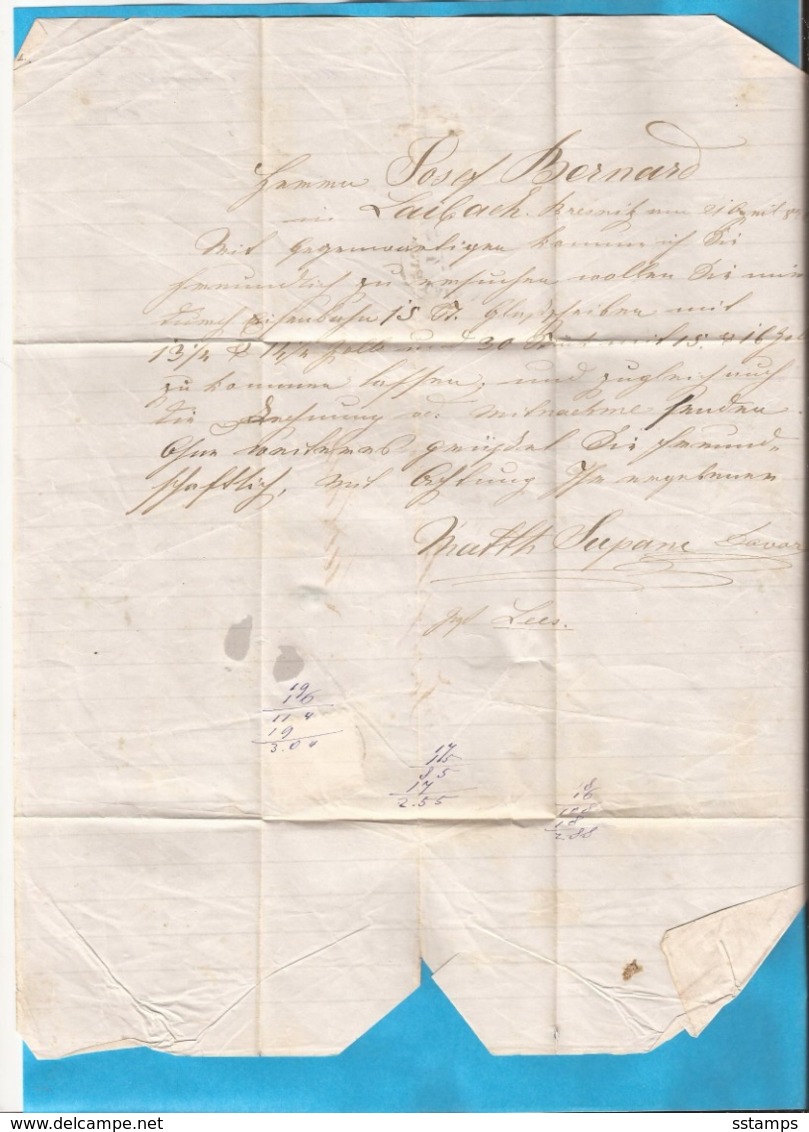 Herrn Josef Bernard
in Laibach. am 21 April
Mit Gegenwärtigen komme ich Sie
freundlich zu ersuchen wollen Sie mir
durch Eisenbahn 15 St. Glasscheiben mit
13 1/4 & 14 1/4 Zoll und 30 mit 15. & 16 Zoll
zu kommen lassen, und zugleich auch
die Rechnung senden
Ohne weiteres grüßet Sie freund-
schaftlich, mit Achtung Ihr ergebener
Matth Supanc
Lees.
19
16
114
19
3.04
17
15
85
17
2.55
18
16
108
18
2.88
sstamps
Delcampe.net